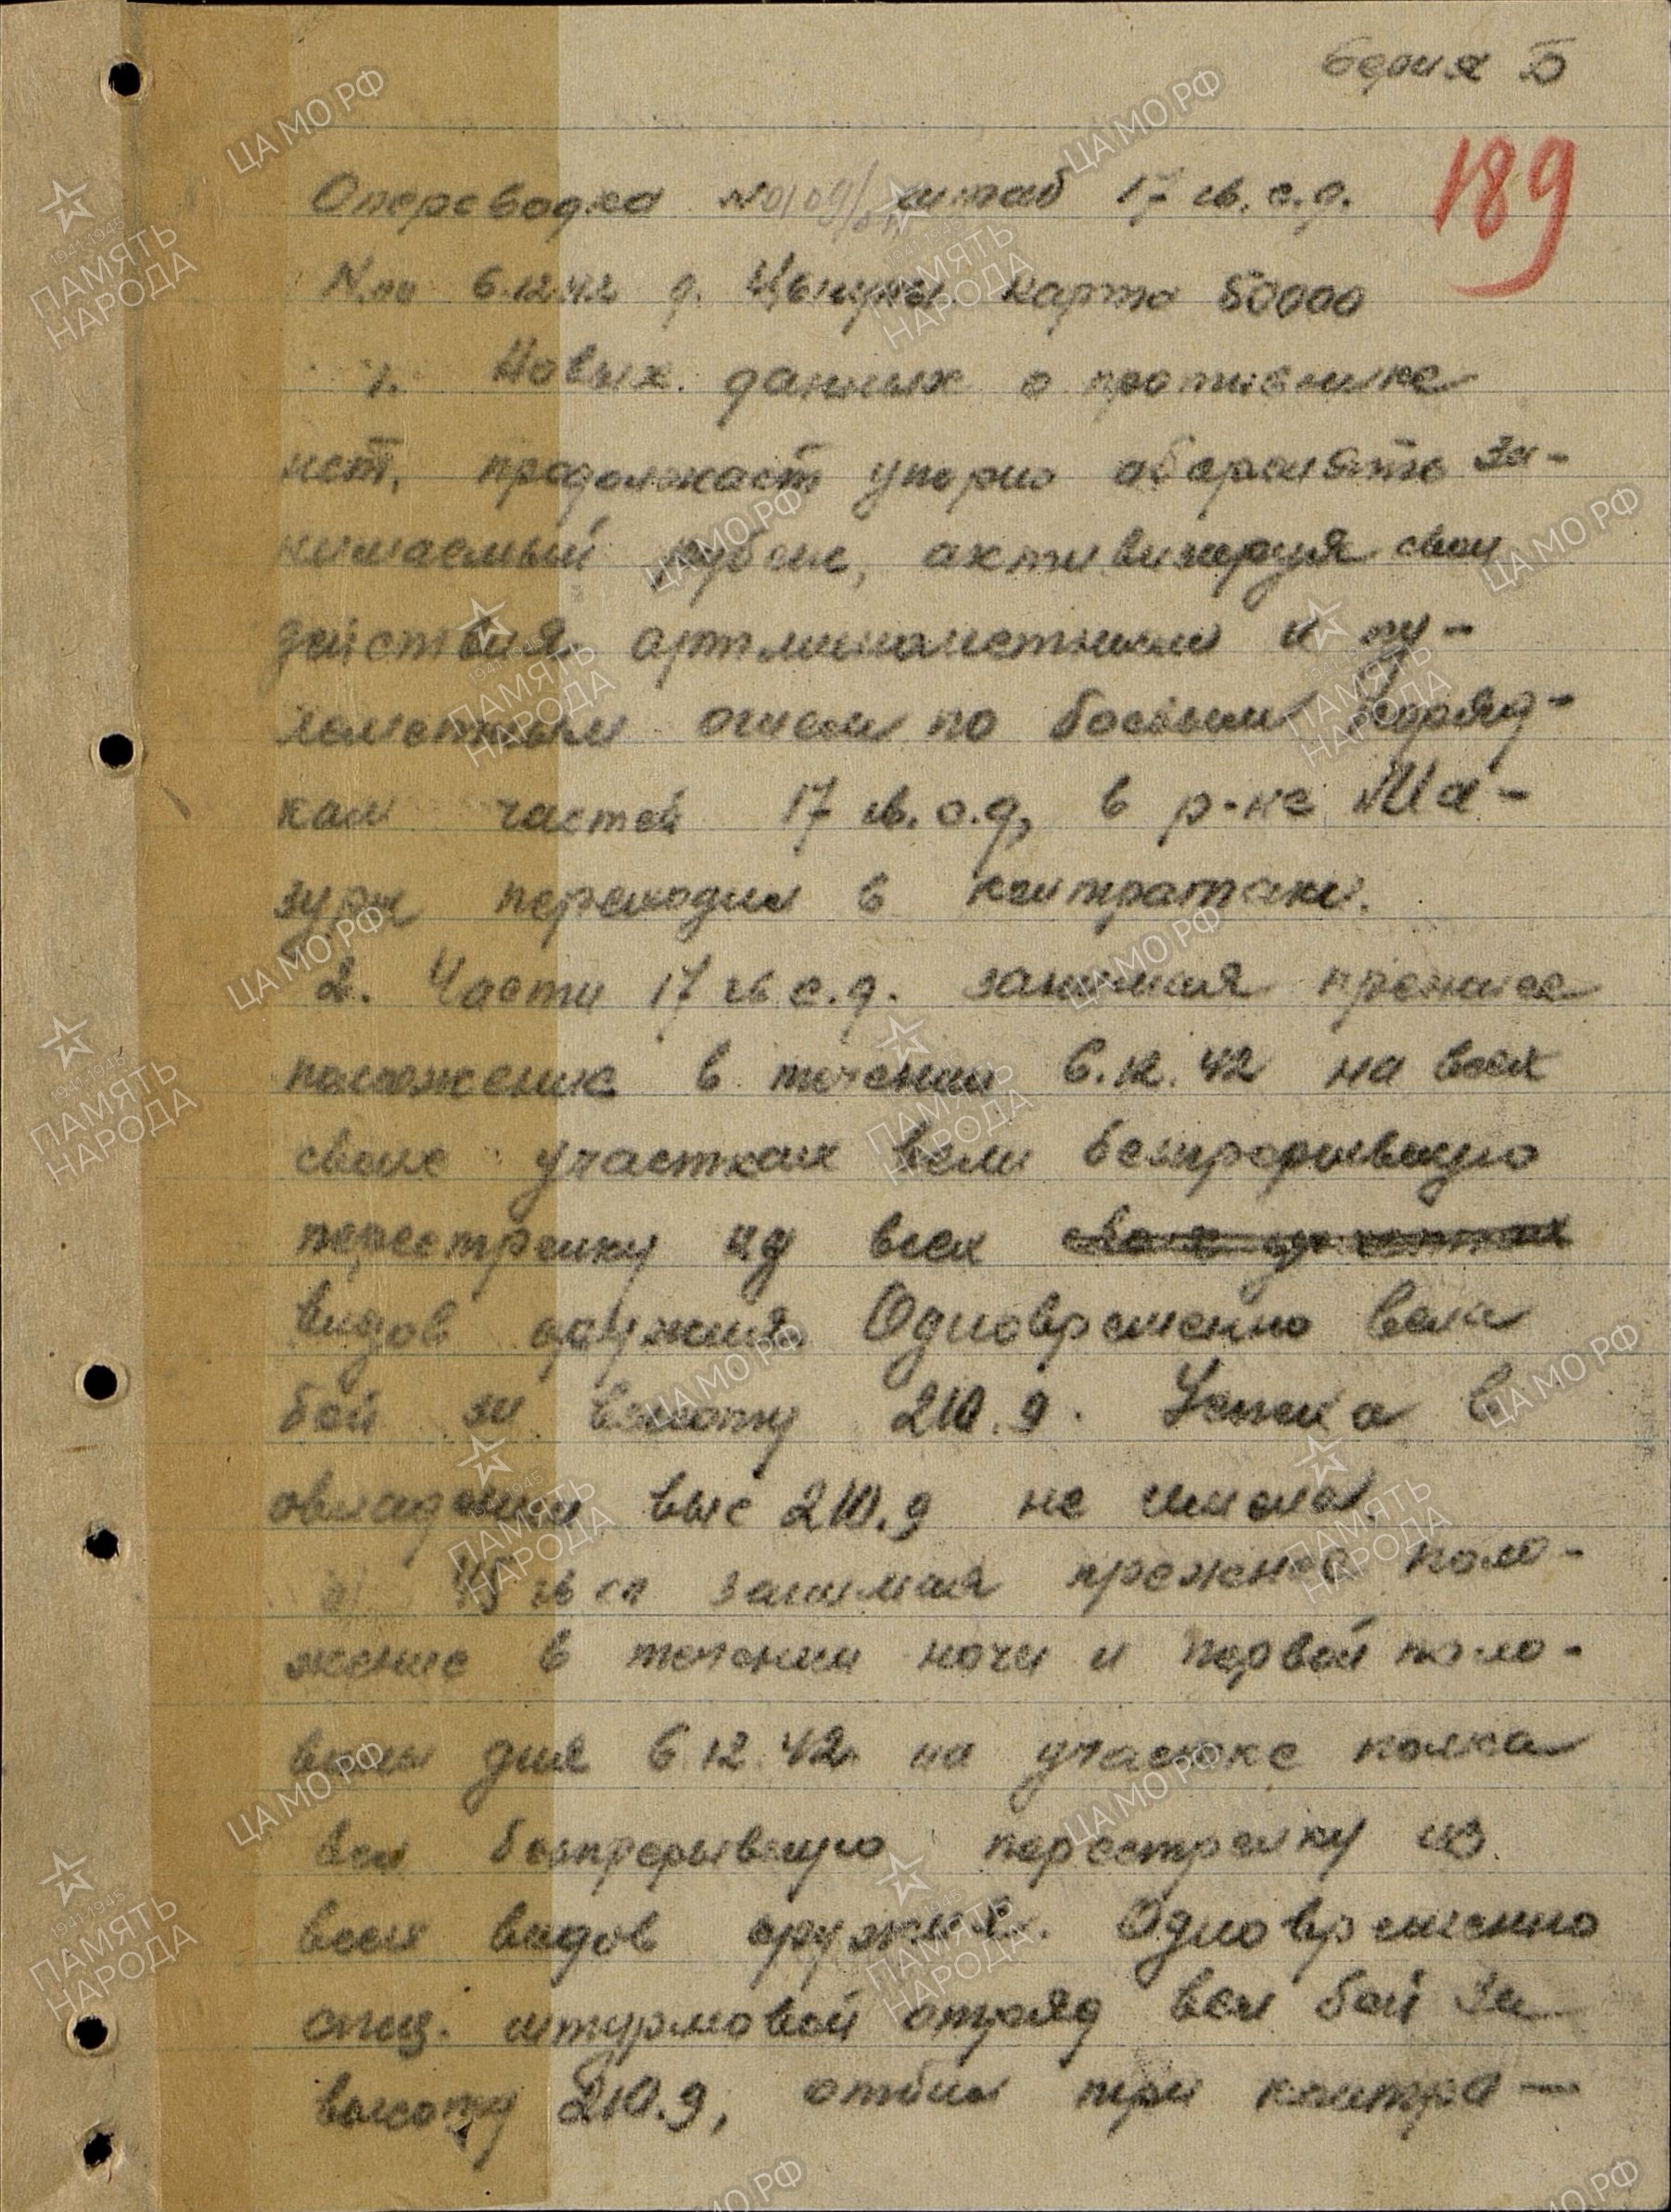 Серия Б
189
Оперсводка № штаб 17 гв. с.д.
6.12.42 д. Цыгуны карта 50000
1. Новых данных о противнике
нет, продолжает упорно оборонять за-
нимаемый рубеж, активизируя свои
действия артминометным и пу-
леметным огнем по боевым поряд-
кам частей 17 гв. с.д, в р-не Ма-
зура переходил в контратаки.
2. Части 17 гв с.д. занимая прежнее
положение в течении 6.12.42 на всех
своих участках вели безпрерывную
перестрелку из всех
видов оружия. Одновременно вели
бой за высоту 210.9. Успеха в
овладении выс 210.9 не имели.
а) 45 гв сп занимая прежнее поло-
жение в течении ночи и первой поло-
вины дня 6.12.42 на участке полка
вел безпрерывную перестрелку из
всех видов оружия. Одновременно
спец. штурмовой отряд вел бой за
высоту 210.9, отбил три контра-